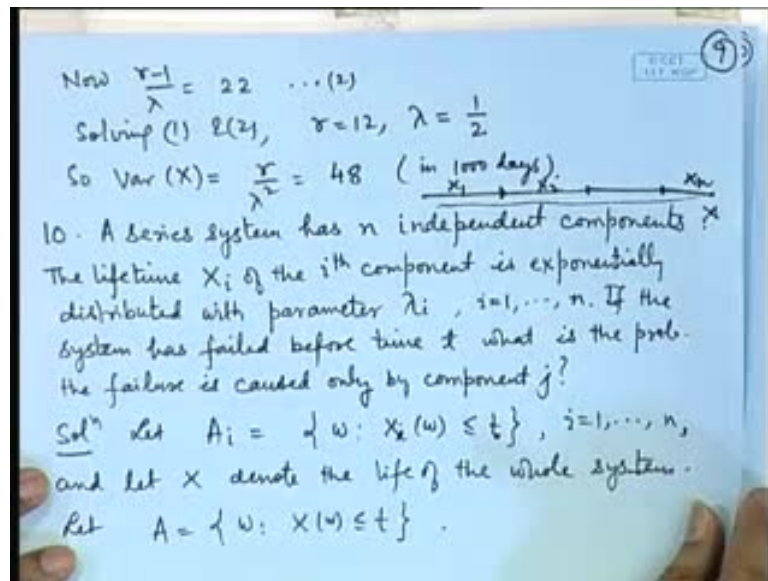 Now r-1/λ = 22 ...(2)
Solving (1) &(2), r=12, λ = 1/2
So Var (X) = r/λ² = 48 (in 1000 days)
X₁ Xᵢ Xₙ
X
10. A series system has n independent components.
The lifetime Xᵢ of the iᵗʰ component is exponentially
distributed with parameter λᵢ, i=1, ..., n. If the
system has failed before time t what is the prob.
the failure is caused only by component j?
Solⁿ Let Aᵢ = {ω: Xᵢ(ω) ≤ t}, i=1, ..., n,
and let X denote the life of the whole system.
Let A = {ω: X(ω) ≤ t}.
9